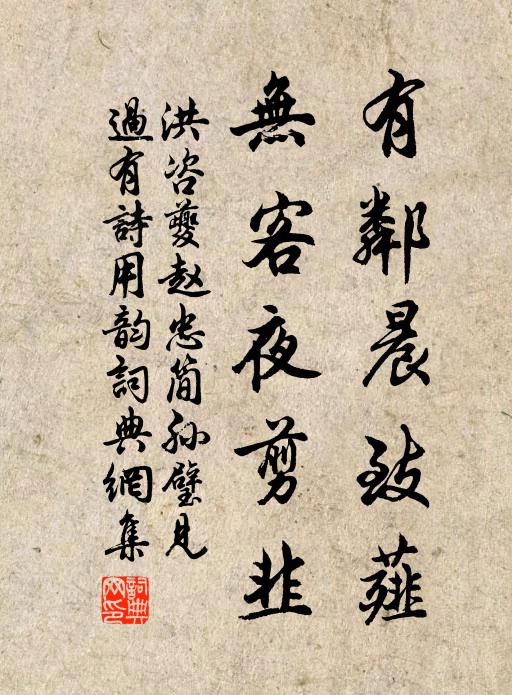 有鄰晨致薤
無客夜剪韭
洪咨夔赵忠简孙璧见
過有詩用韵詞典網集
詞典网印